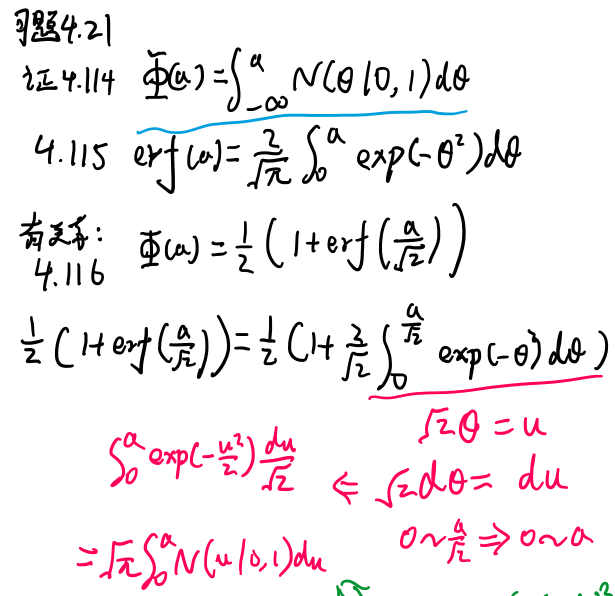 习题4.21
证4.114 Φ(a)=∫_{-∞}^{a} N(θ|0,1)dθ
4.115 erf(a)=2/√π ∫_0^a exp(-θ²)dθ
有关系:
4.116 Φ(a)=1/2(1+erf(a/√2))
1/2(1+erf(a/√2))=1/2(1+2/√2 ∫_0^{a/√2} exp(-θ²)dθ)
√2θ=u
∫_0^a exp(-u²/2)du/√2 ⇐ √2dθ=du
0~a/√2⇒0~a
=√π∫_0^a N(u|0,1)du